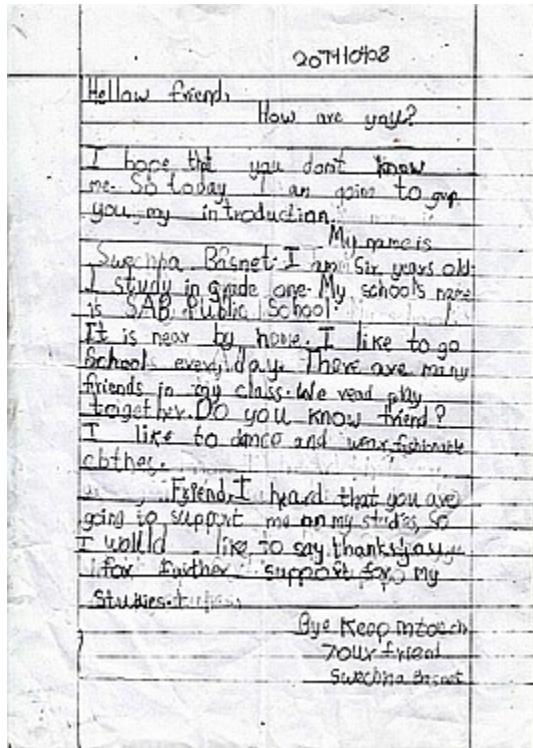 2074/04/08
Hellow friend,
How are you?
I hope that you don't know
me. So today I am going to give
you, my introduction.
My name is
Swechha Basnet. I am Six years old.
I study in grade one. My schools name
is SAB Public School.
It is near by home. I like to go
Schools every day. There are many
friends in my class. We read play
together. Do you know friend?
I like to dance and wear, fashionable
clothes.
Friend, I heard that you are
going to support me on my studies, So
I would like to say thanks you
for further support for my
Studies.
Bye Keep intoch
Your friend
Swechha Basnet